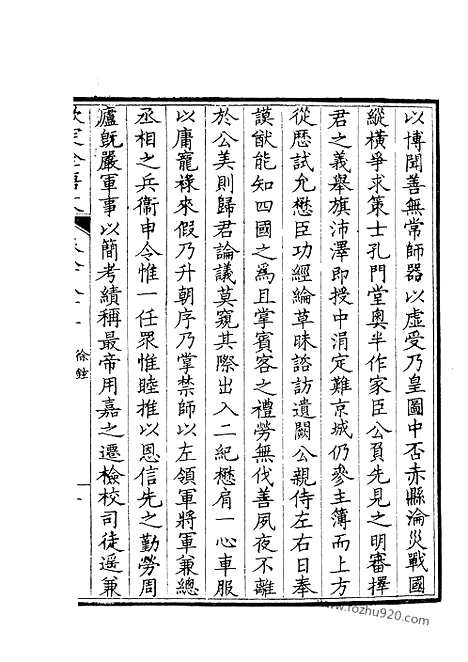 以博聞善無常師器以虛受乃皇圖中否赤縣淪災戰國
縱橫爭求策士孔門堂奧半作家臣公負先見之明審擇
君之義舉旗沛澤即授中涓定難京城仍參主簿而上方
從歷試允懋臣功經綸草昧諮訪遺闕公親侍左右日奉
謨猷能知四國之為且掌賓客之禮勞無伐善夙夜不離
於公美則歸君論議莫窺其際出入二紀懋肩一心車服
以庸寵祿來假乃升朝序乃掌禁師以左領軍將軍兼總
丞相之兵衞申令惟一任眾惟睦推以恩信先之勤勞周
廬旣嚴軍事以簡考績稱最帝用嘉之遷檢校司徒遥兼
欽定全唐文
徐鉉
www.rozhu920.com